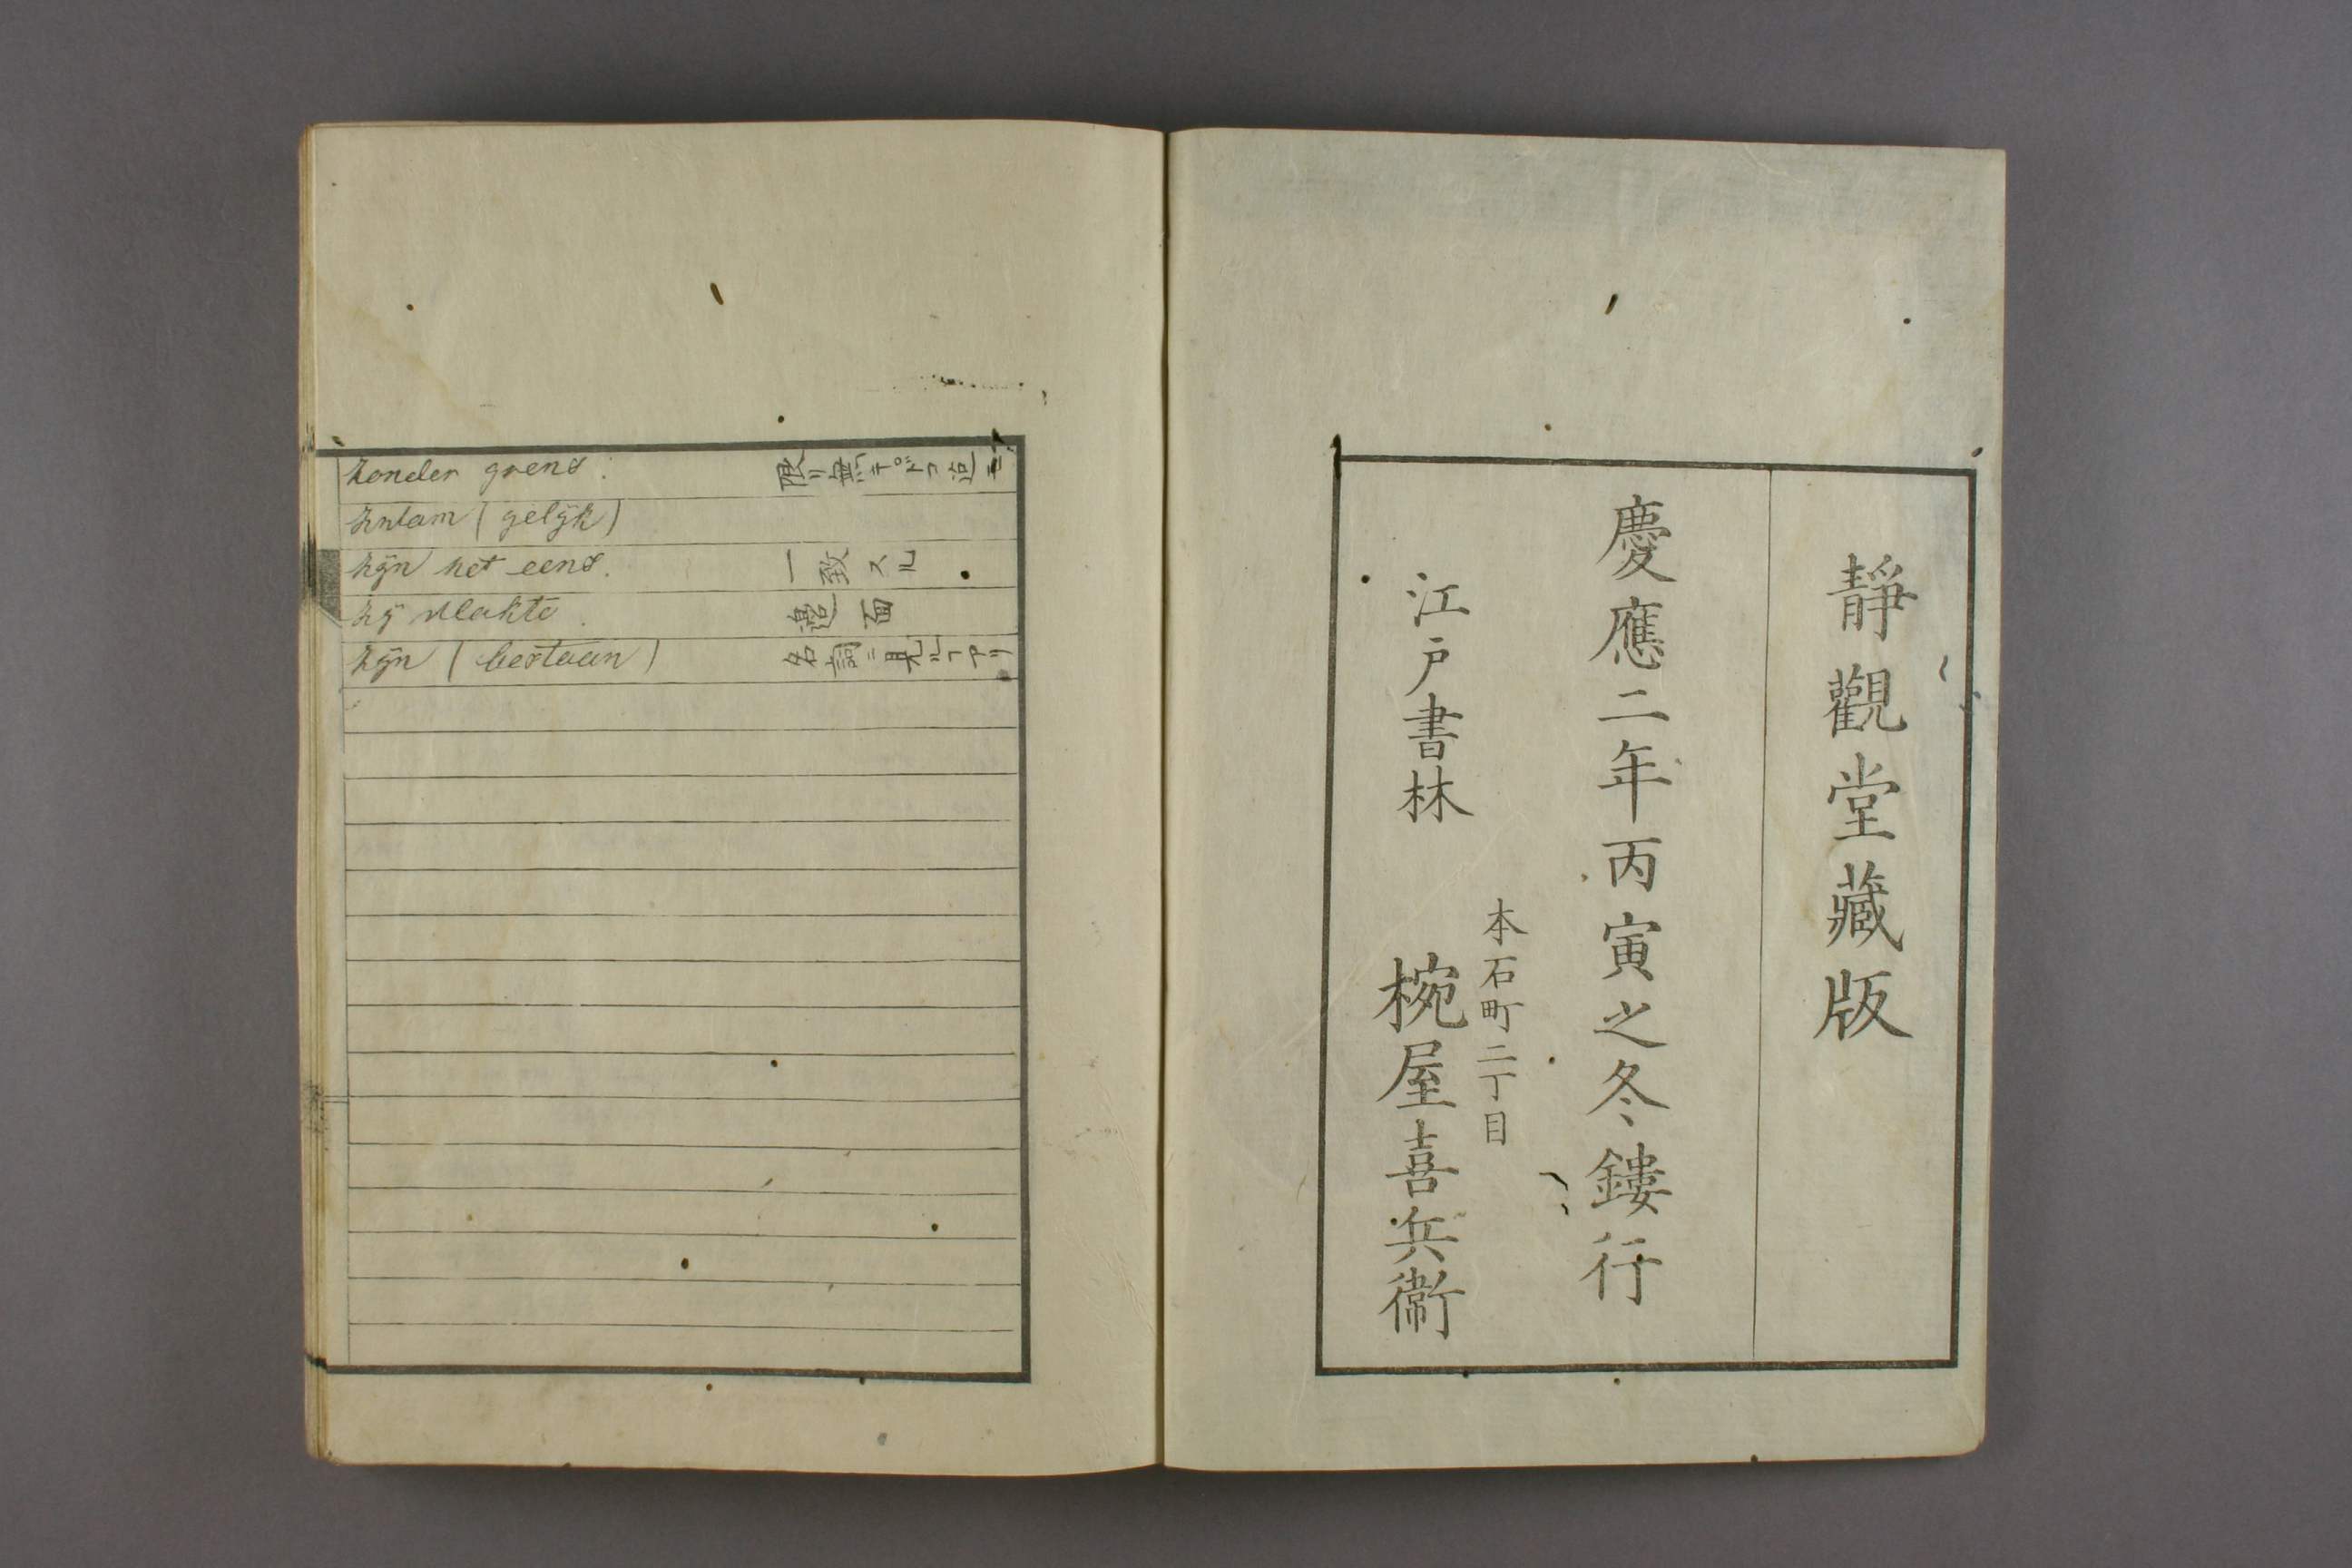 靜觀堂藏版
慶應二年丙寅之冬鏤行
本石町二丁目
江戸書林 椀屋喜兵衞
zonder grens.
zulam (gelijk)
zijn het eens. 一致スル
zij vlakte. 邉面
zijn (bestaan) 名詞ニ見ルヿアリ